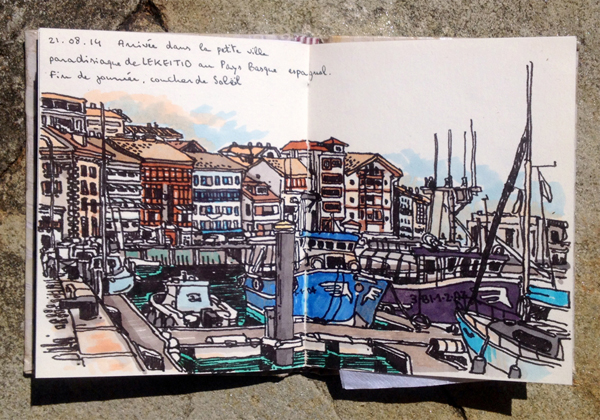 21.08.14 Arrivée dans la petite ville
paradisiaque de LEKEITIO au Pays Basque espagnol.
Fin de journée, coucher de Soleil
3-BI-1-2-07